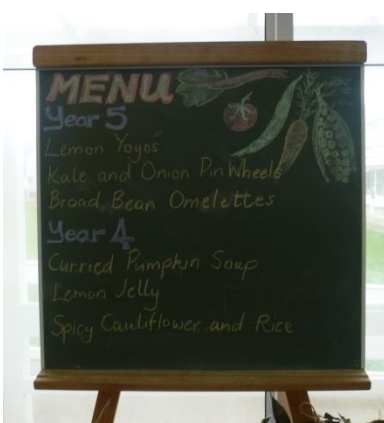 MENU
Year 5
Lemon Yoyos
Kale and Onion Pin Wheels
Broad Bean Omelettes
Year 4
Curried Pumpkin Soup
Lemon Jelly
Spicy Cauliflower and Rice